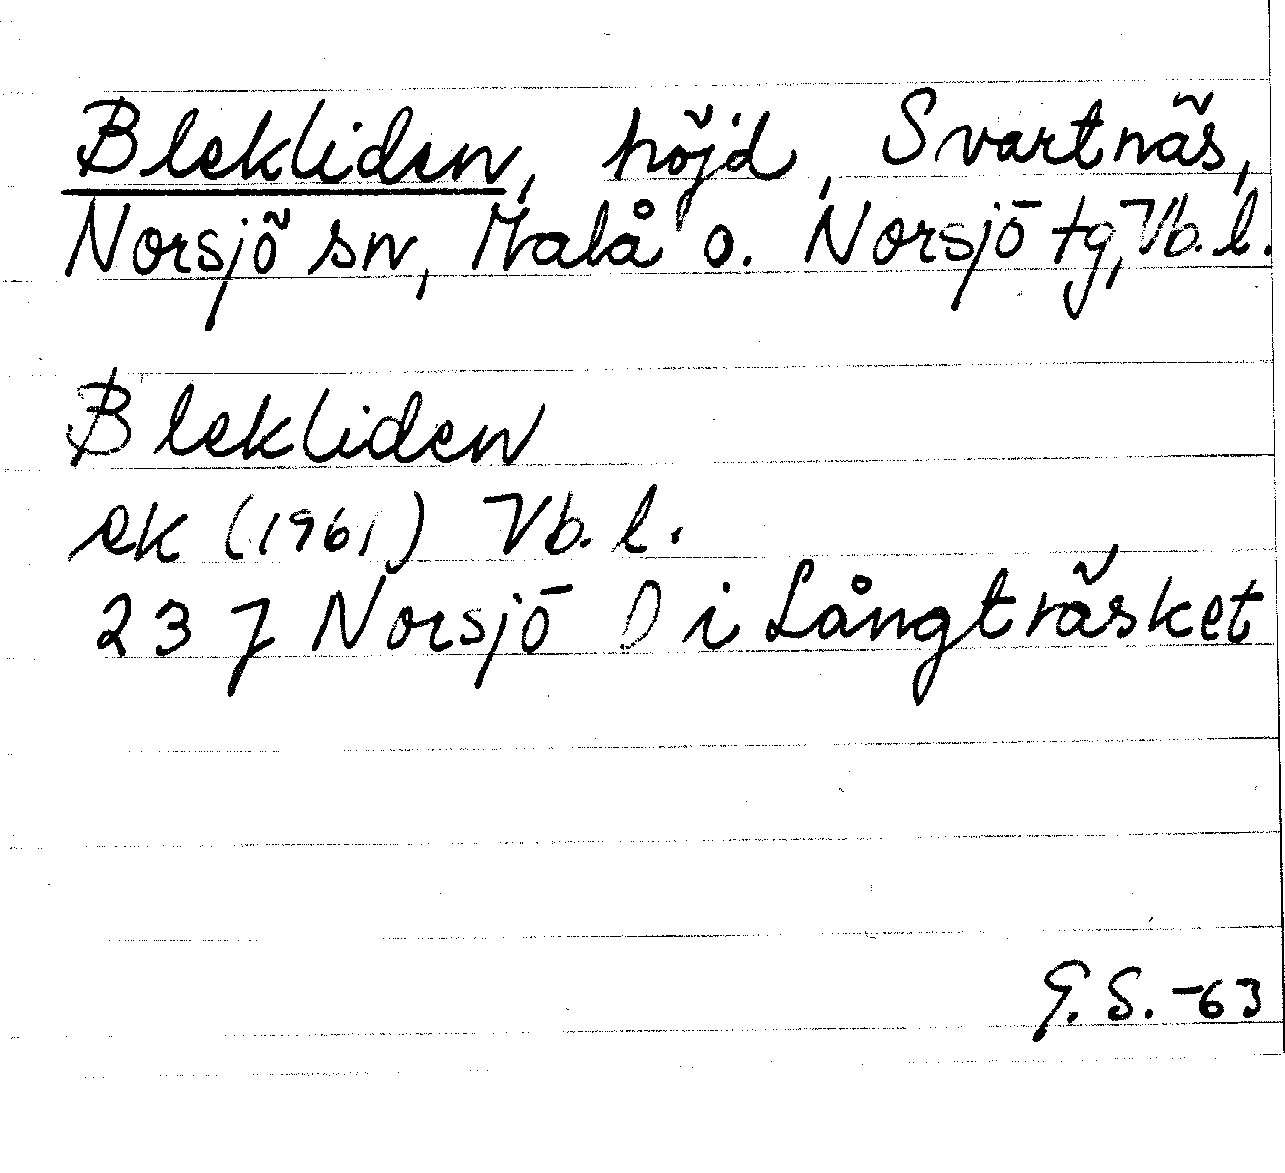 Blekliden, höjd, Svartnäs,
Norsjö sn, Malå o. Norsjö tg, Vb. l.
Blekliden
ek (1961) Vb. l.
23 J Norsjö D i Långträsket
G. S. -63